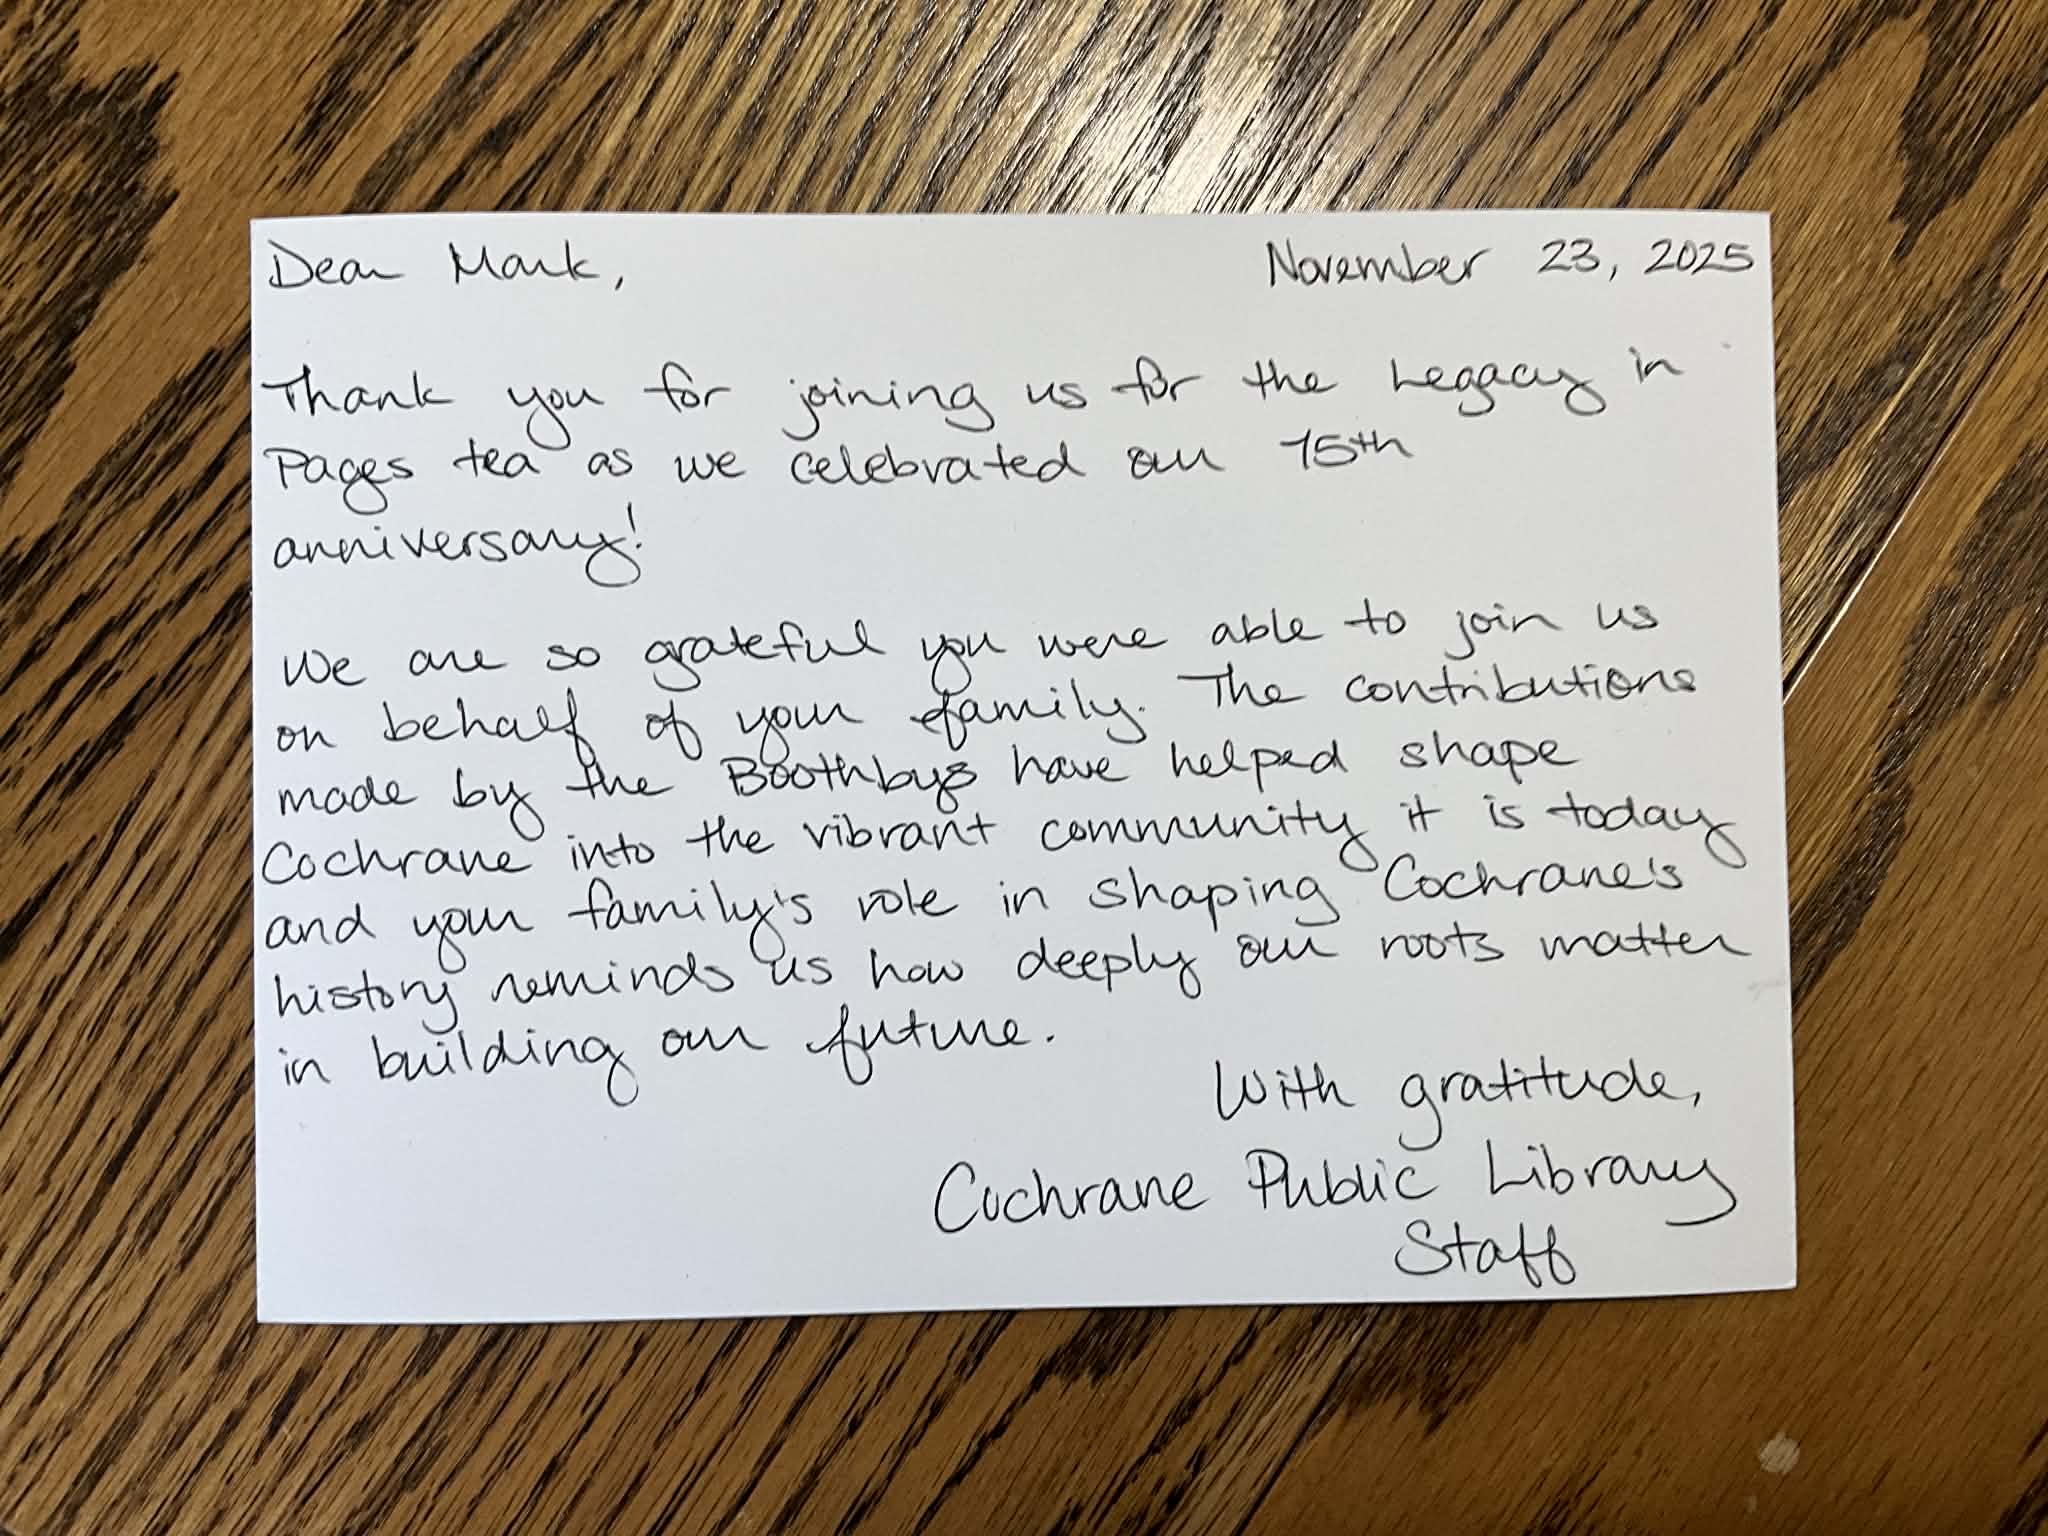 Dear Mark,
November 23, 2025
Thank you for joining us for the Legacy in
Pages tea as we celebrated our 75th
anniversary!
We are so grateful you were able to join us
on behalf of your family. The contributions
made by the Boothbys have helped shape
Cochrane into the vibrant community it is today
and your family's role in shaping Cochrane's
history reminds us how deeply our roots matter
in building our future.
With gratitude,
Cochrane Public Library
Staff